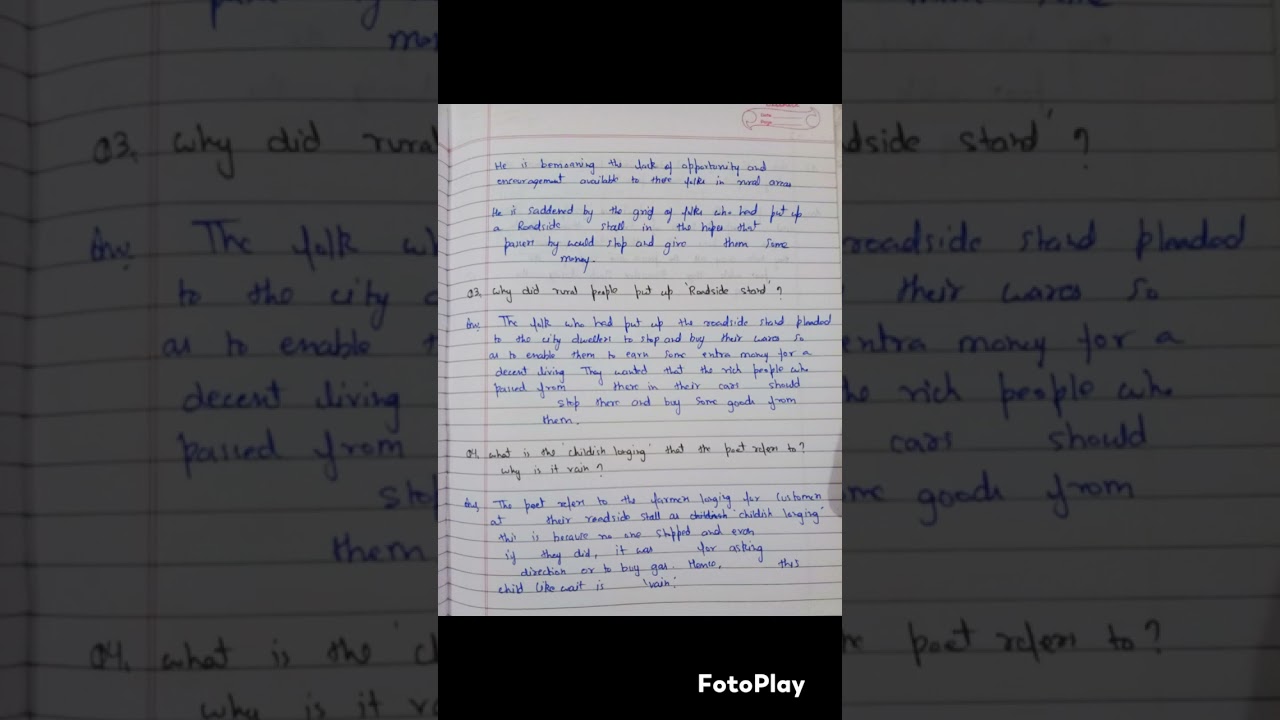 He is bemoaning the lack of opportunity and
encouragement available to these folks in rural areas
He is saddened by the grid of folks who had put up
a Roadside stall in the hopes that
passers by would stop and give them some
money.
Q3. Why did rural people put up 'Roadside stand'?
Ans: The folk who had put up the roadside stand pleaded
to the city dwellers to stop and buy their wares so
as to enable them to earn some extra money for a
decent living They wanted that the rich people who
passed from there in their cars should
stop there and buy some goods from
them.
Q4. what is the 'childish longing' that the poet refers to?
why is it vain?
Ans, The poet refers to the farmers longing for customers
at their roadside stall as childish longing'
this is because no one stopped and even
if they did, it was for asking
direction or to buy gas. Hence, this
child like wait is 'vain'.
FotoPlay